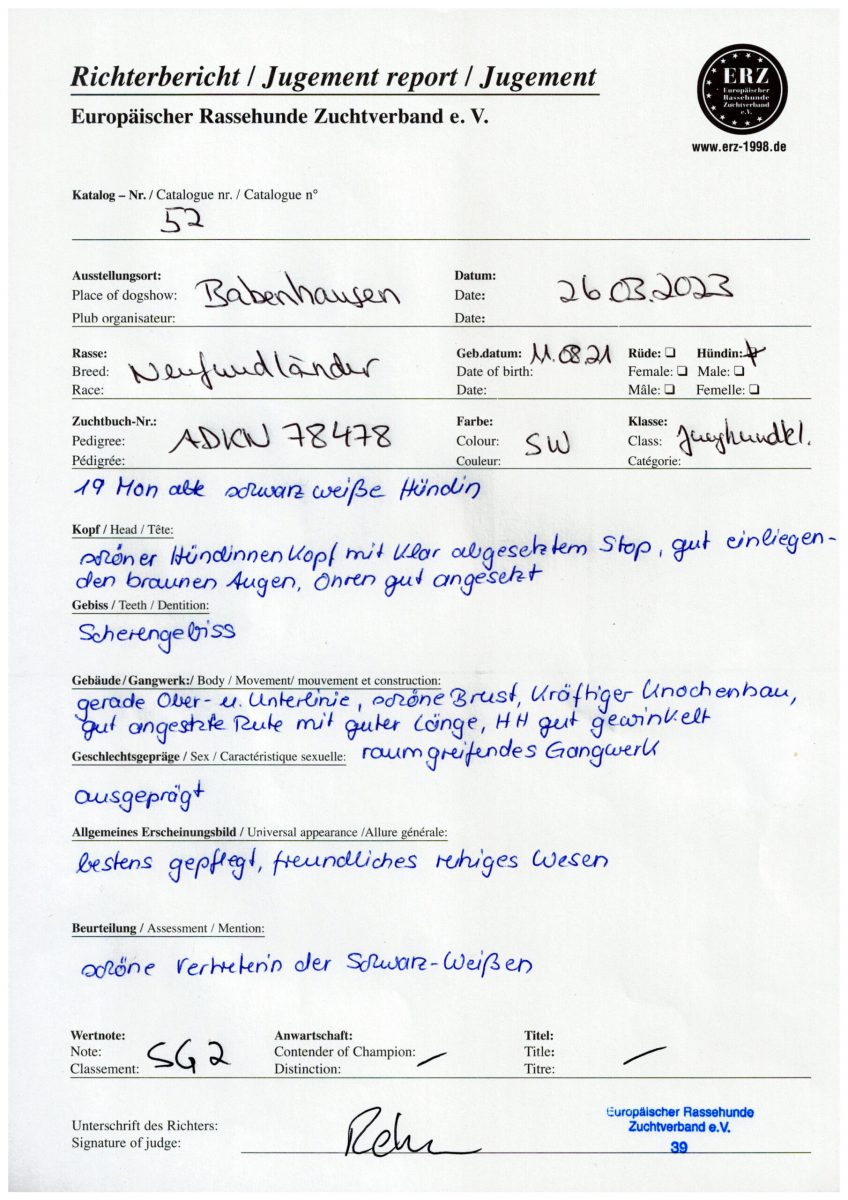 Richterbericht / Jugement report / Jugement
Europäischer Rassehunde Zuchtverband e. V.
ERZ
Europäischer
Rassehunde
Zuchtverband
e.V.
www.erz-1998.de
Katalog – Nr. / Catalogue nr. / Catalogue n°
52
Ausstellungsort:
Place of dogshow: Babenhausen
Plub organisateur:
Datum:
Date: 26.03.2023
Date:
Rasse:
Breed: Neufundländer
Race:
Geb.datum: 11.08.21
Date of birth:
Date:
Rüde: ☐ Hündin: ☒
Female: ☐ Male: ☐
Mâle: ☐ Femelle: ☐
Zuchtbuch-Nr.:
Pedigree: ADKN 78478
Pédigrée:
Farbe:
Colour: SW
Couleur:
Klasse:
Class: Junghundkl.
Catégorie:
19 Mon alte schwarz weiße Hündin
Kopf / Head / Tête:
schöner Hündinnenkopf mit klar abgesetztem Stop, gut einliegen-
den braunen Augen, Ohren gut angesetzt
Gebiss / Teeth / Dentition:
Scherengebiss
Gebäude / Gangwerk:/ Body / Movement/ mouvement et construction:
gerade Ober- u. Unterlinie, schöne Brust, kräftiger Knochenbau,
gut angestzte Rute mit guter Länge, HH gut gewinkelt
Geschlechtsgepräge / Sex / Caractéristique sexuelle: raumgreifendes Gangwerk
ausgeprägt
Allgemeines Erscheinungsbild / Universal appearance /Allure générale:
bestens gepflegt, freundliches ruhiges Wesen
Beurteilung / Assessment / Mention:
schöne Vertreterin der Schwarz-Weißen
Wertnote:
Note: SG 2
Classement:
Anwartschaft:
Contender of Champion: —
Distinction:
Titel:
Title: —
Titre:
Unterschrift des Richters:
Signature of judge:
Europäischer Rassehunde
Zuchtverband e.V.
39